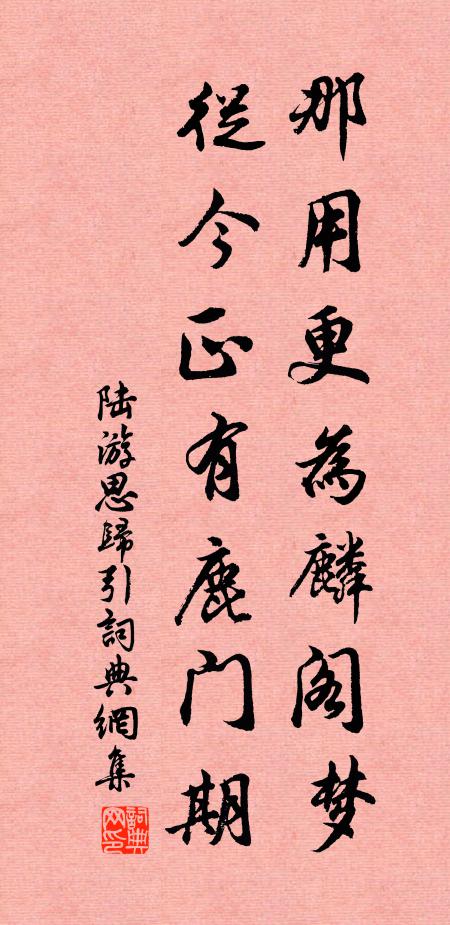 那用更為麟阁梦
從今正有鹿门期
陆游思歸引詞典網集
詞典网印